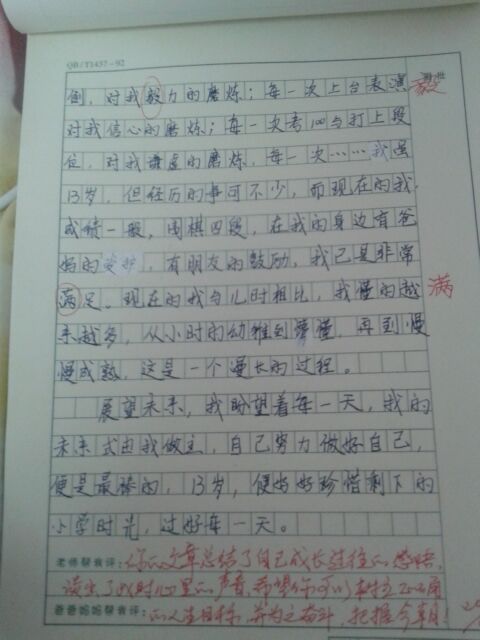 QB/T1437-92
倒，对我毅力的磨炼；每一次上台表演 毅
对我信心的磨炼；每一次考100与打上段
位，对我谦虚的磨炼，每一次……我虽
13岁，但经历的事可不少，而现在的我，
成绩一般，围棋四段，在我的身边有爸
妈的爱护，有朋友的鼓励，我已是非常
满足。现在的我与儿时相比，我懂的越 满
来越多，从小时的幼稚到懵懂，再到慢
慢成熟，这是一个漫长的过程。
展望未来，我盼望着每一天，我的
未来式由我做主，自己努力做好自己，
便是最棒的，13岁，便好好珍惜剩下的
小学时光，过好每一天。
老师帮我评：你的文章总结了自己成长过程的感悟，
读出了我时心里的声音，希望你可以树立正确
爸爸妈妈帮我评：的人生目标，并为之奋斗，把握今朝！